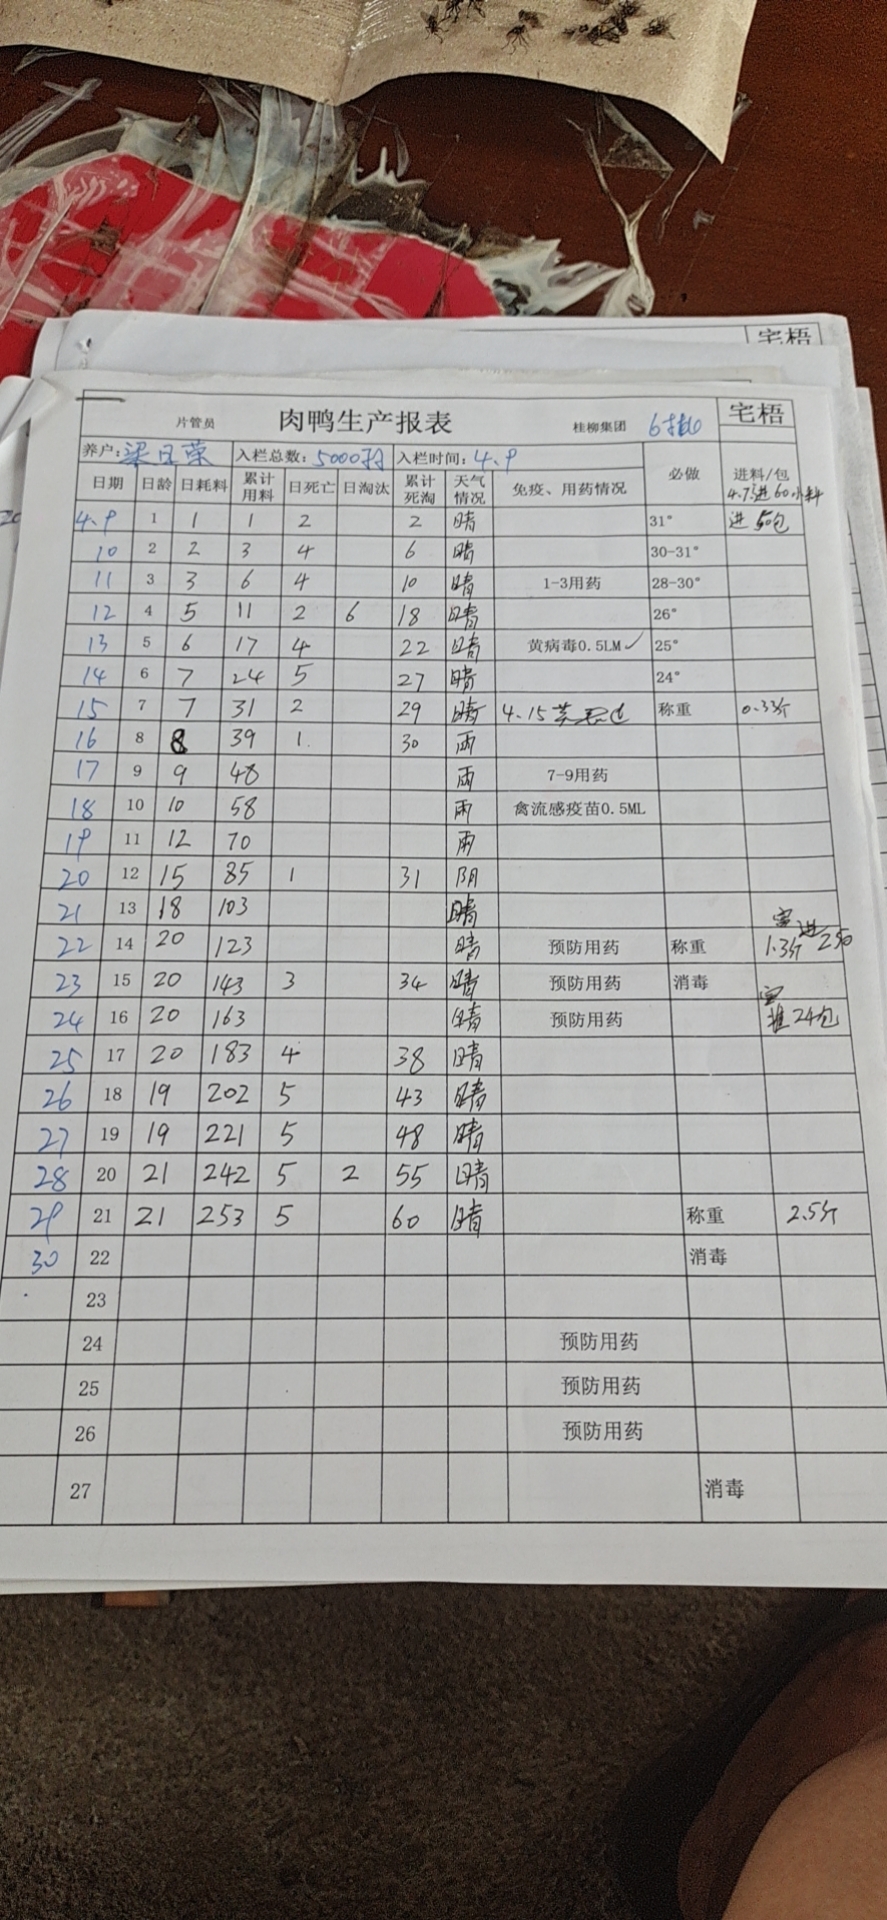 宅梧
片管员 肉鸭生产报表 桂柳集团 6批 宅梧
养户: 入栏总数: 5000 入栏时间: 4.9
日期 日龄 日耗料 累计用料 日死亡 日淘汰 累计死淘 天气情况 免疫、用药情况 必做 进料/包
4.7进60小料
4.9 1 1 1 2 2 晴 31° 进50包
10 2 2 3 4 6 晴 30-31°
11 3 3 6 4 10 晴 1-3用药 28-30°
12 4 5 11 2 6 18 晴 26°
13 5 6 17 4 22 晴 黄病毒0.5LM✓ 25°
14 6 7 24 5 27 晴 24°
15 7 7 31 2 29 晴 4.15 称重 0.33斤
16 8 8 39 1 30 雨
17 9 9 48 雨 7-9用药
18 10 10 58 雨 禽流感疫苗0.5ML
19 11 12 70 雨
20 12 15 85 1 31 阴
21 13 18 103 晴
22 14 20 123 晴 预防用药 称重 1.3斤
23 15 20 143 3 34 晴 预防用药 消毒
24 16 20 163 晴 预防用药 24包
25 17 20 183 4 38 晴
26 18 19 202 5 43 晴
27 19 19 221 5 48 晴
28 20 21 242 5 2 55 晴
29 21 21 253 5 60 晴 称重 2.5斤
30 22 消毒
23
24 预防用药
25 预防用药
26 预防用药
27 消毒